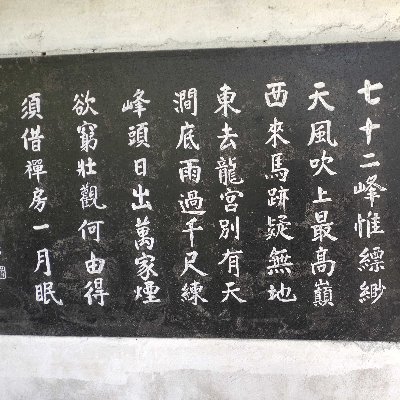 七十二峰惟縹緲
天風吹上最高巔
西來馬跡疑無地
東去龍宮別有天
澗底雨過千尺練
峰頭日出萬家煙
欲窮壯觀何由得
須借禪房一月眠